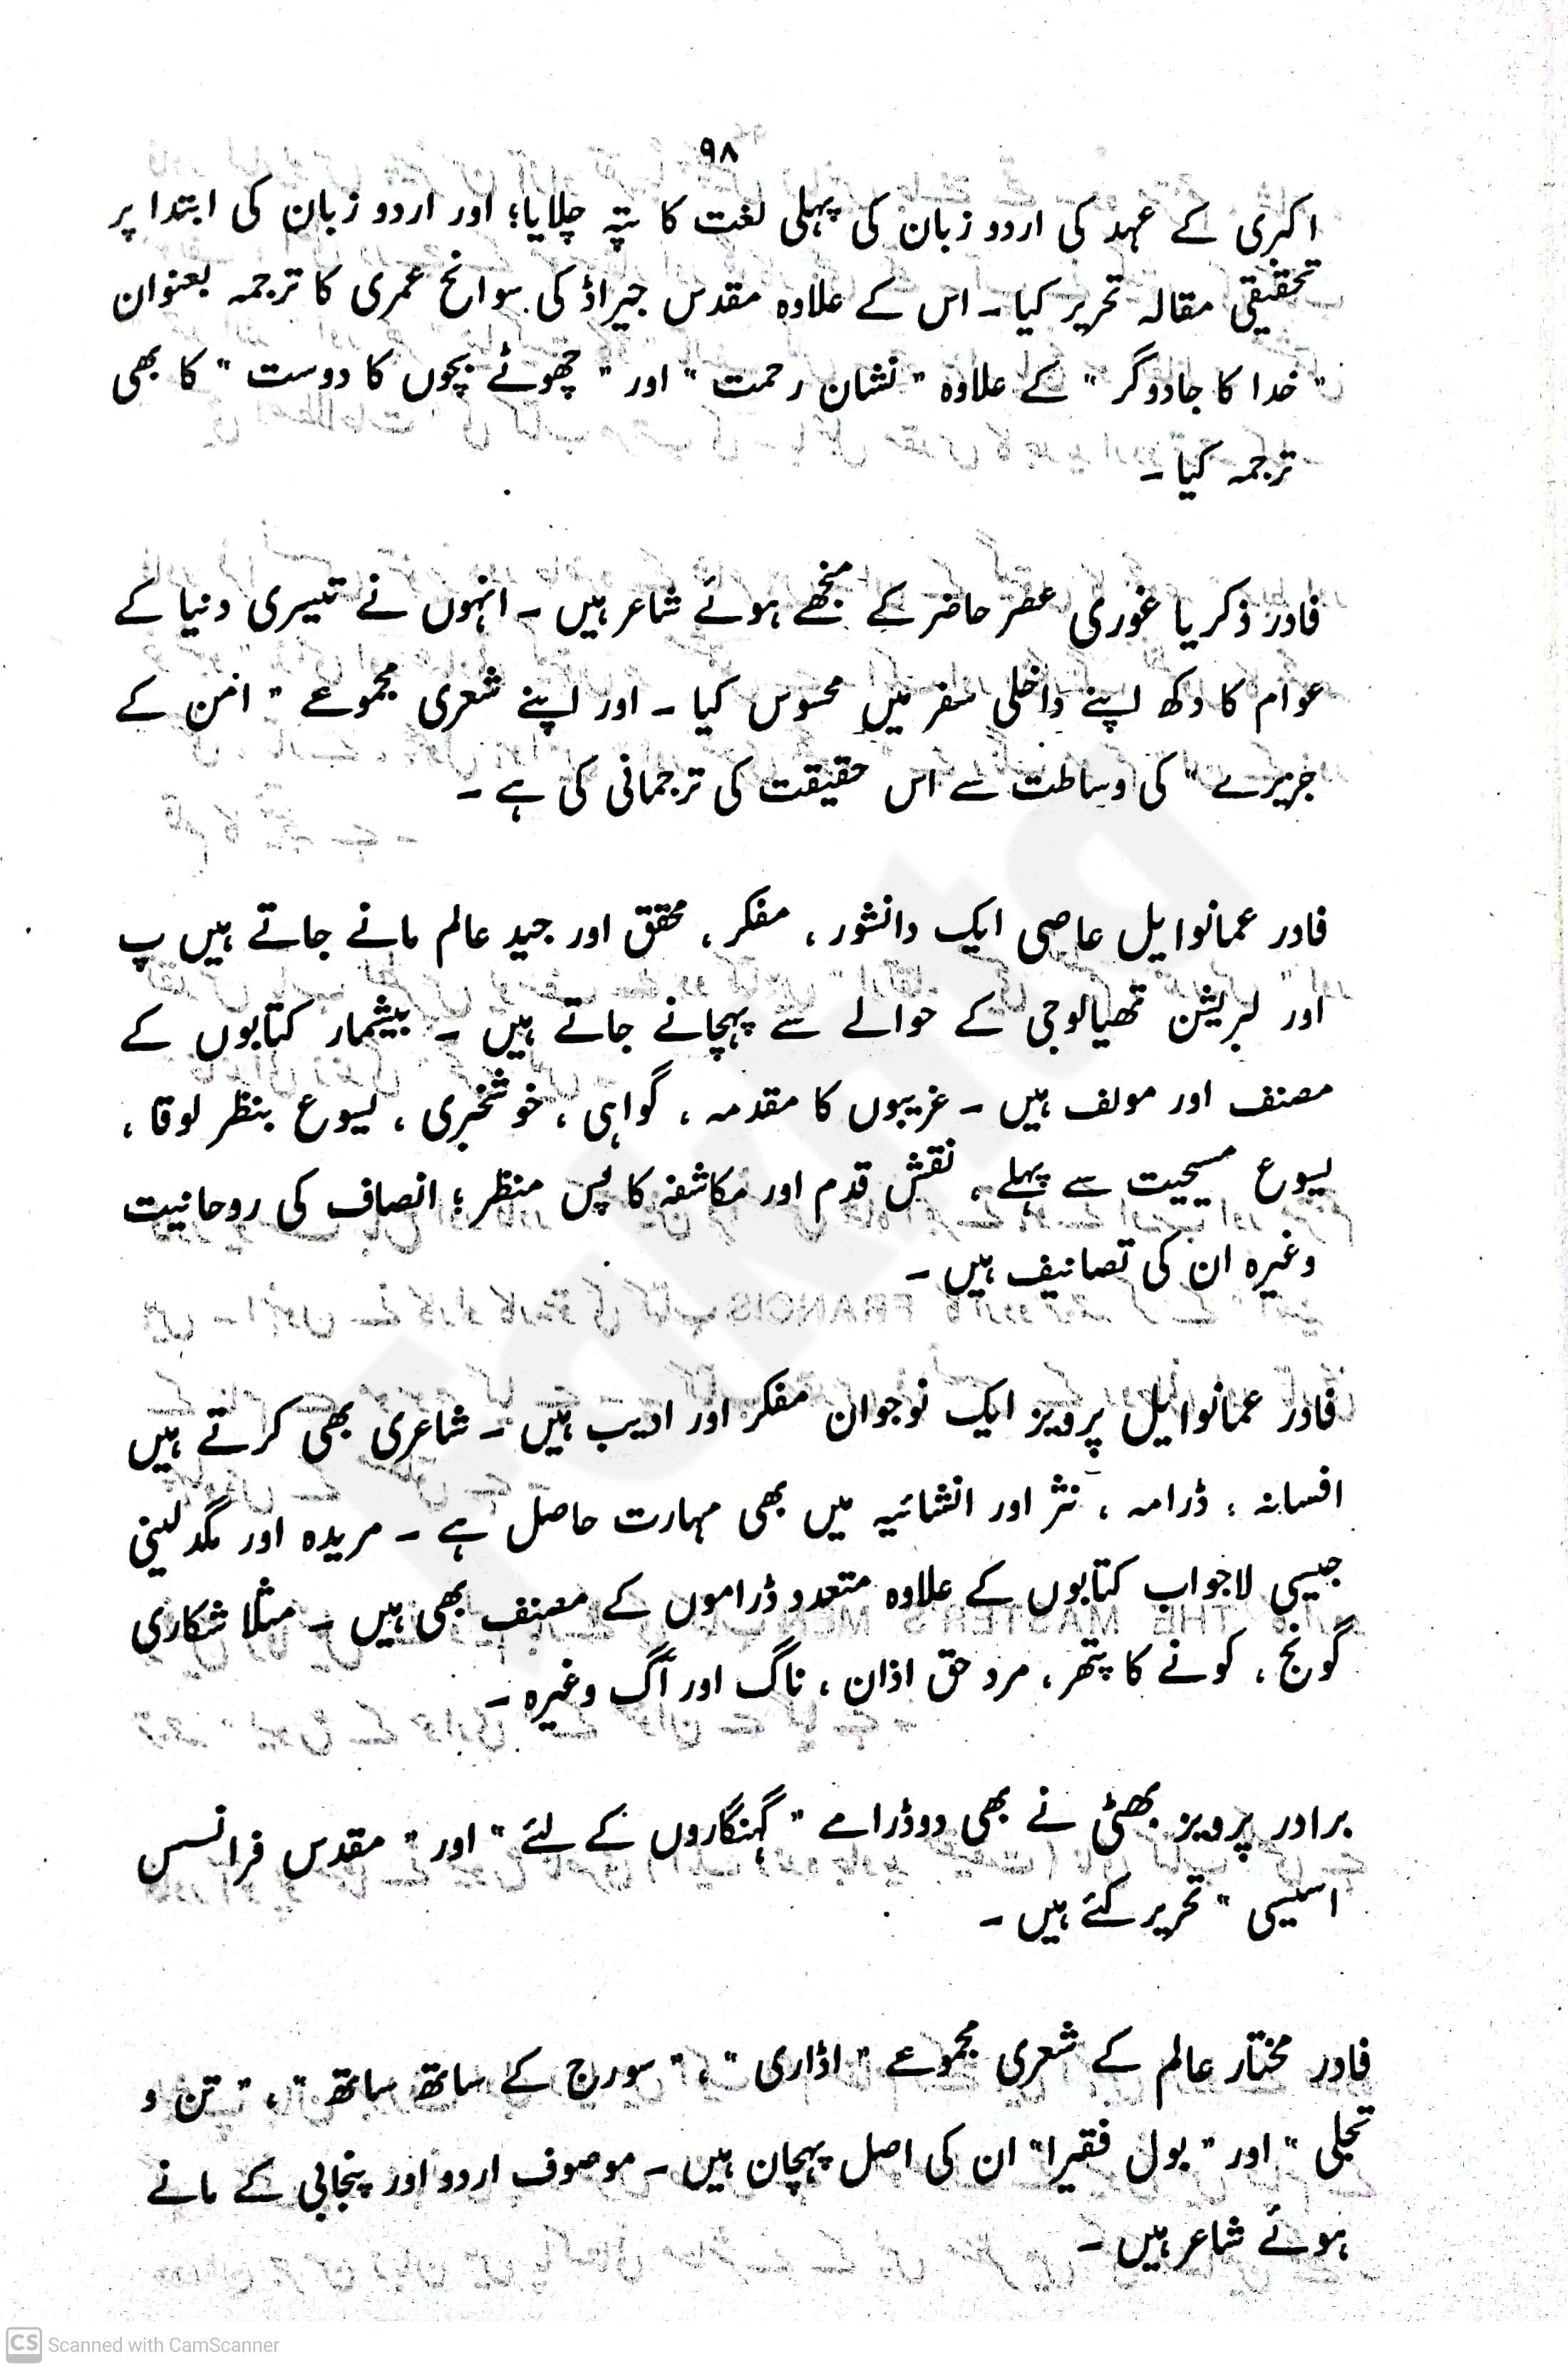 ۹۸
اکبری کے عہد کی اردو زبان کی پہلی لغت کا پتہ چلایا؛ اور اردو زبان کی ابتدا پر
تحقیقی مقالہ تحریر کیا ۔ اس کے علاوہ مقدس جیراڈ کی سوانح عمری کا ترجمہ بعنوان
" خدا کا جادوگر " کے علاوہ " نشان رحمت " اور " چھوٹے بچوں کا دوست " کا بھی
ترجمہ کیا ۔
فادر ذکریا غوری عصر حاضر کے منجھے ہوئے شاعر ہیں ۔ انہوں نے تیسری دنیا کے
عوام کا دکھ اپنے داخلی سفر میں محسوس کیا ۔ اور اپنے شعری مجموعے " امن کے
جزیرے " کی وساطت سے اس حقیقت کی ترجمانی کی ہے ۔
فادر عمانوایل عاصی ایک دانشور ، مفکر ، محقق اور جید عالم مانے جاتے ہیں پ
اور لبریشن تھیالوجی کے حوالے سے پہچانے جاتے ہیں ۔ بیشمار کتابوں کے
مصنف اور مولف ہیں ۔ غریبوں کا مقدمہ ، گواہی ، خوشخبری ، یسوع بنظر لوقا ،
یسوع مسیحیت سے پہلے ، نقش قدم اور مکاشفہ کا پس منظر ؛ انصاف کی روحانیت
وغیرہ ان کی تصانیف ہیں ۔
فادر عمانوایل پرویز ایک نوجوان مفکر اور ادیب ہیں ۔ شاعری بھی کرتے ہیں
افسانہ ، ڈرامہ ، نثر اور انشائیہ میں بھی مہارت حاصل ہے ۔ مریدہ اور مگدلینی
جیسی لاجواب کتابوں کے علاوہ متعدد ڈراموں کے مصنف بھی ہیں ۔ مثلا شکاری
گونج ، کونے کا پتھر ، مرد حق اذان ، ناگ اور آگ وغیرہ ۔
برادر پرویز بھٹی نے بھی دو ڈرامے " گہنگاروں کے لئے " اور " مقدس فرانسس
اسیسی " تحریر کئے ہیں ۔
فادر مختار عالم کے شعری مجموعے " اڈاری " ، " سورج کے ساتھ ساتھ " ، " تن و
تجلی " اور " بول فقیرا " ان کی اصل پہچان ہیں ۔ موصوف اردو اور پنجابی کے مانے
ہوئے شاعر ہیں ۔
CS Scanned with CamScanner